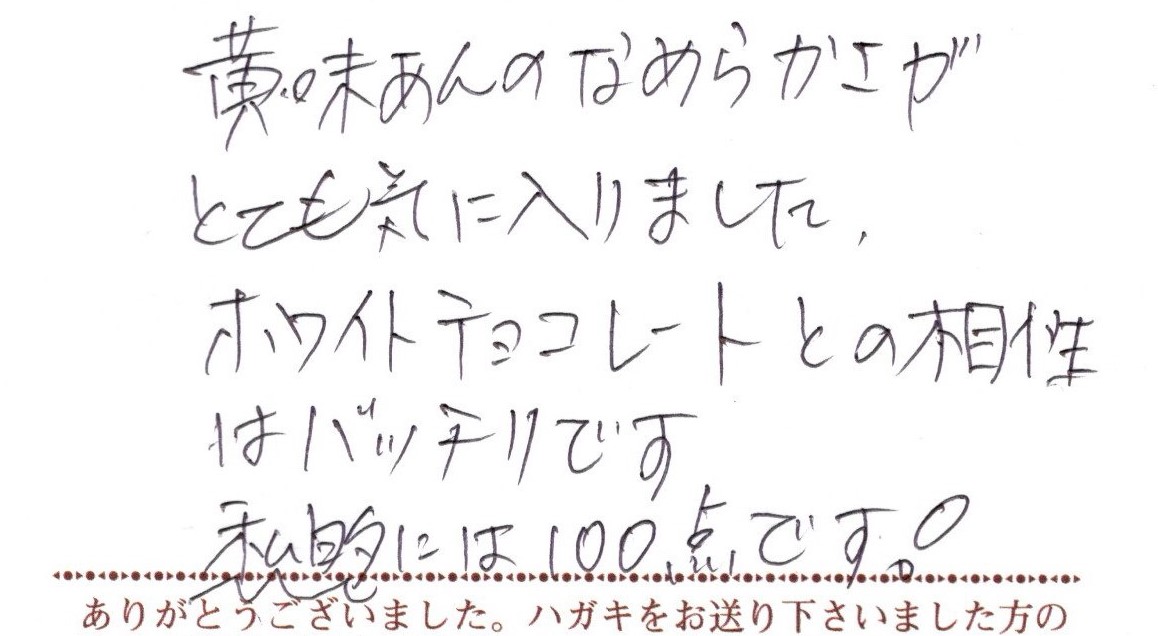 黄味あんのなめらかさが
とても気に入りました.
ホワイトチョコレートとの相性
はバッチリです
私的には100点です!
ありがとうございました。ハガキをお送り下さいました方の